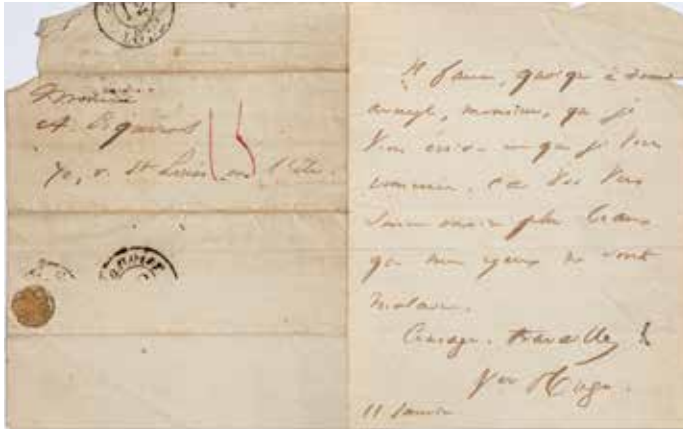 Monsieur
A. Esquiros
70, r. St Louis en l'île.
15
Il faut, quoique à demi
aveugle, monsieur, que je
vous écrive et que je vous
remercie. Car vos vers
sont encore plus beaux
que mes yeux ne sont
malades.
Courage. travaillez
Vor Hugo.
11 janvier